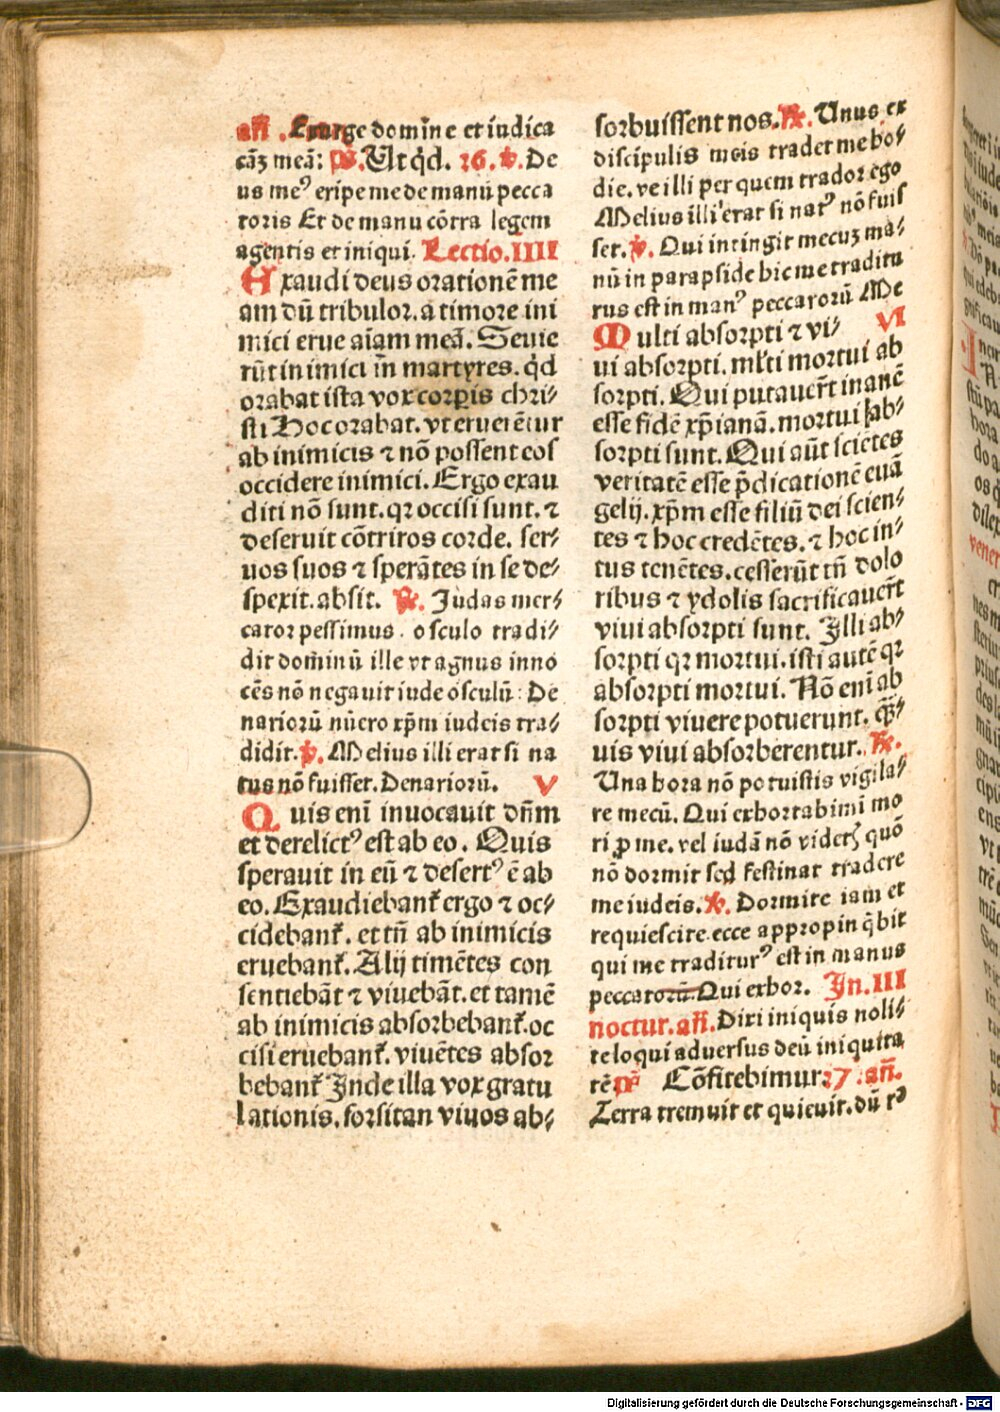 an̄ .Exurge domīne et iudica
cāꝫ meā: p̄s. Ut qd̄. 26. ꝟ. De
us meꝰ eripe me de manu pecca
toris Et de manu cōtra legem
agentis et iniqui. Lectio. IIII
Exaudi deus orationē me
am dū tribulor. a timore ini
mici erue aīam meā. Seuie
rūt inimici in martyres. qd̄
orabat ista vox corꝑis chri⸗
sti Hoc orabat. vt eruerētur
ab inimicis ⁊ nō possent eos
occidere inimici. Ergo exau
diti nō sunt. qꝛ occisi sunt. ⁊
deseruit cōtritos corde. ser⸗
uos suos ⁊ sperātes in se de⸗
spexit. absit. ℟. Judas mer⸗
cator pessimus . osculo tradi⸗
dit dominū ille vt agnus inno
cēs nō negauit iude osculū: De
nariorū nūero xp̄m iudeis tra⸗
didit. ꝟ. Melius illi erat si na
tus nō fuisset. Denariorū. V
Quis enī inuocauit dn̄m
et derelictꝰ est ab eo. Quis
sperauit in eū ⁊ desertꝰ ē ab
eo. Exaudiebant̄ ergo ⁊ oc⸗
cidebant̄. et tn̄ ab inimicis
eruebant̄. Alij timētes con
sentiebāt ⁊ viuebāt. et tamē
ab inimicis absorbebant̄. oc
cisi eruebant̄. viuētes absor
bebant̄ Inde illa vox gratu
lationis. forsitan viuos ab⸗
sorbuissent nos. ℟. Unus ex
discipulis meis tradet me ho⸗
die. ve illi per quem tradoꝛ ego
Melius illi erat si natꝰ nō fuis
set. ꝟ. Qui intingit mecuꝫ ma⸗
nū in parapside hic me traditu
rus est in manꝰ peccatorū Me
Multi absorpti ⁊ vi⸗ VI
ui absorpti. ml̄ti mortui ab
sorpti. Qui putauer̄t inanē
esse fidē xp̄ianā. mortui ſab⸗
sorpti sunt. Qui aūt sciētes
veritatē esse p̄dicationē euā
gelij. xp̄m esse filiū dei scien⸗
tes ⁊ hoc credētes. ⁊ hoc in⸗
tus tenētes. cesserūt tn̄ dolo
ribus ⁊ ydolis sacrificauer̄t
viui absorpti sunt. Illi ab⸗
sorpti qꝛ mortui. isti autē qꝛ
absorpti mortui. Nō enī ab
sorpti viuere potuerunt. q̄⸗
uis viui absorberentur. ℟.
Una hora nō potuistis vigila⸗
re mecū. Qui exhortabimī mo
ri ꝓ me. vel iudā nō videtꝭ quō
nō dormit sed festinat tradere
me iudeis. ꝟ. Dormite iam et
requiescite. ecce appropinq̄bit
qui me traditurꝰ est in manus
peccatorū. Qui exhor. In. III
noctur. an̄. Dixi iniquis noli⸗
te loqui aduersus deū iniquita
tē p̄s Cōfitebimur. 27 . an̄.
Terra tremuit et quieuit. dū rꝰ
Digitalisierung gefördert durch die Deutsche Forschungsgemeinschaft - DFG